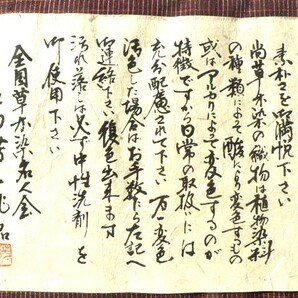 素朴さを御賞味下さい
尚草木染の織物は植物染料
の種類によって酸により変色するもの
或はアルカリによって変色するのが
特徴ですから日常の取扱いには
充分配慮されて下さい 万一変色
汚色した場合はお手数乍ら左記へ
御連絡下さい 復色出来ます
汚れ落しは必ず中性洗剤を
御使用下さい
全国草木染名人会